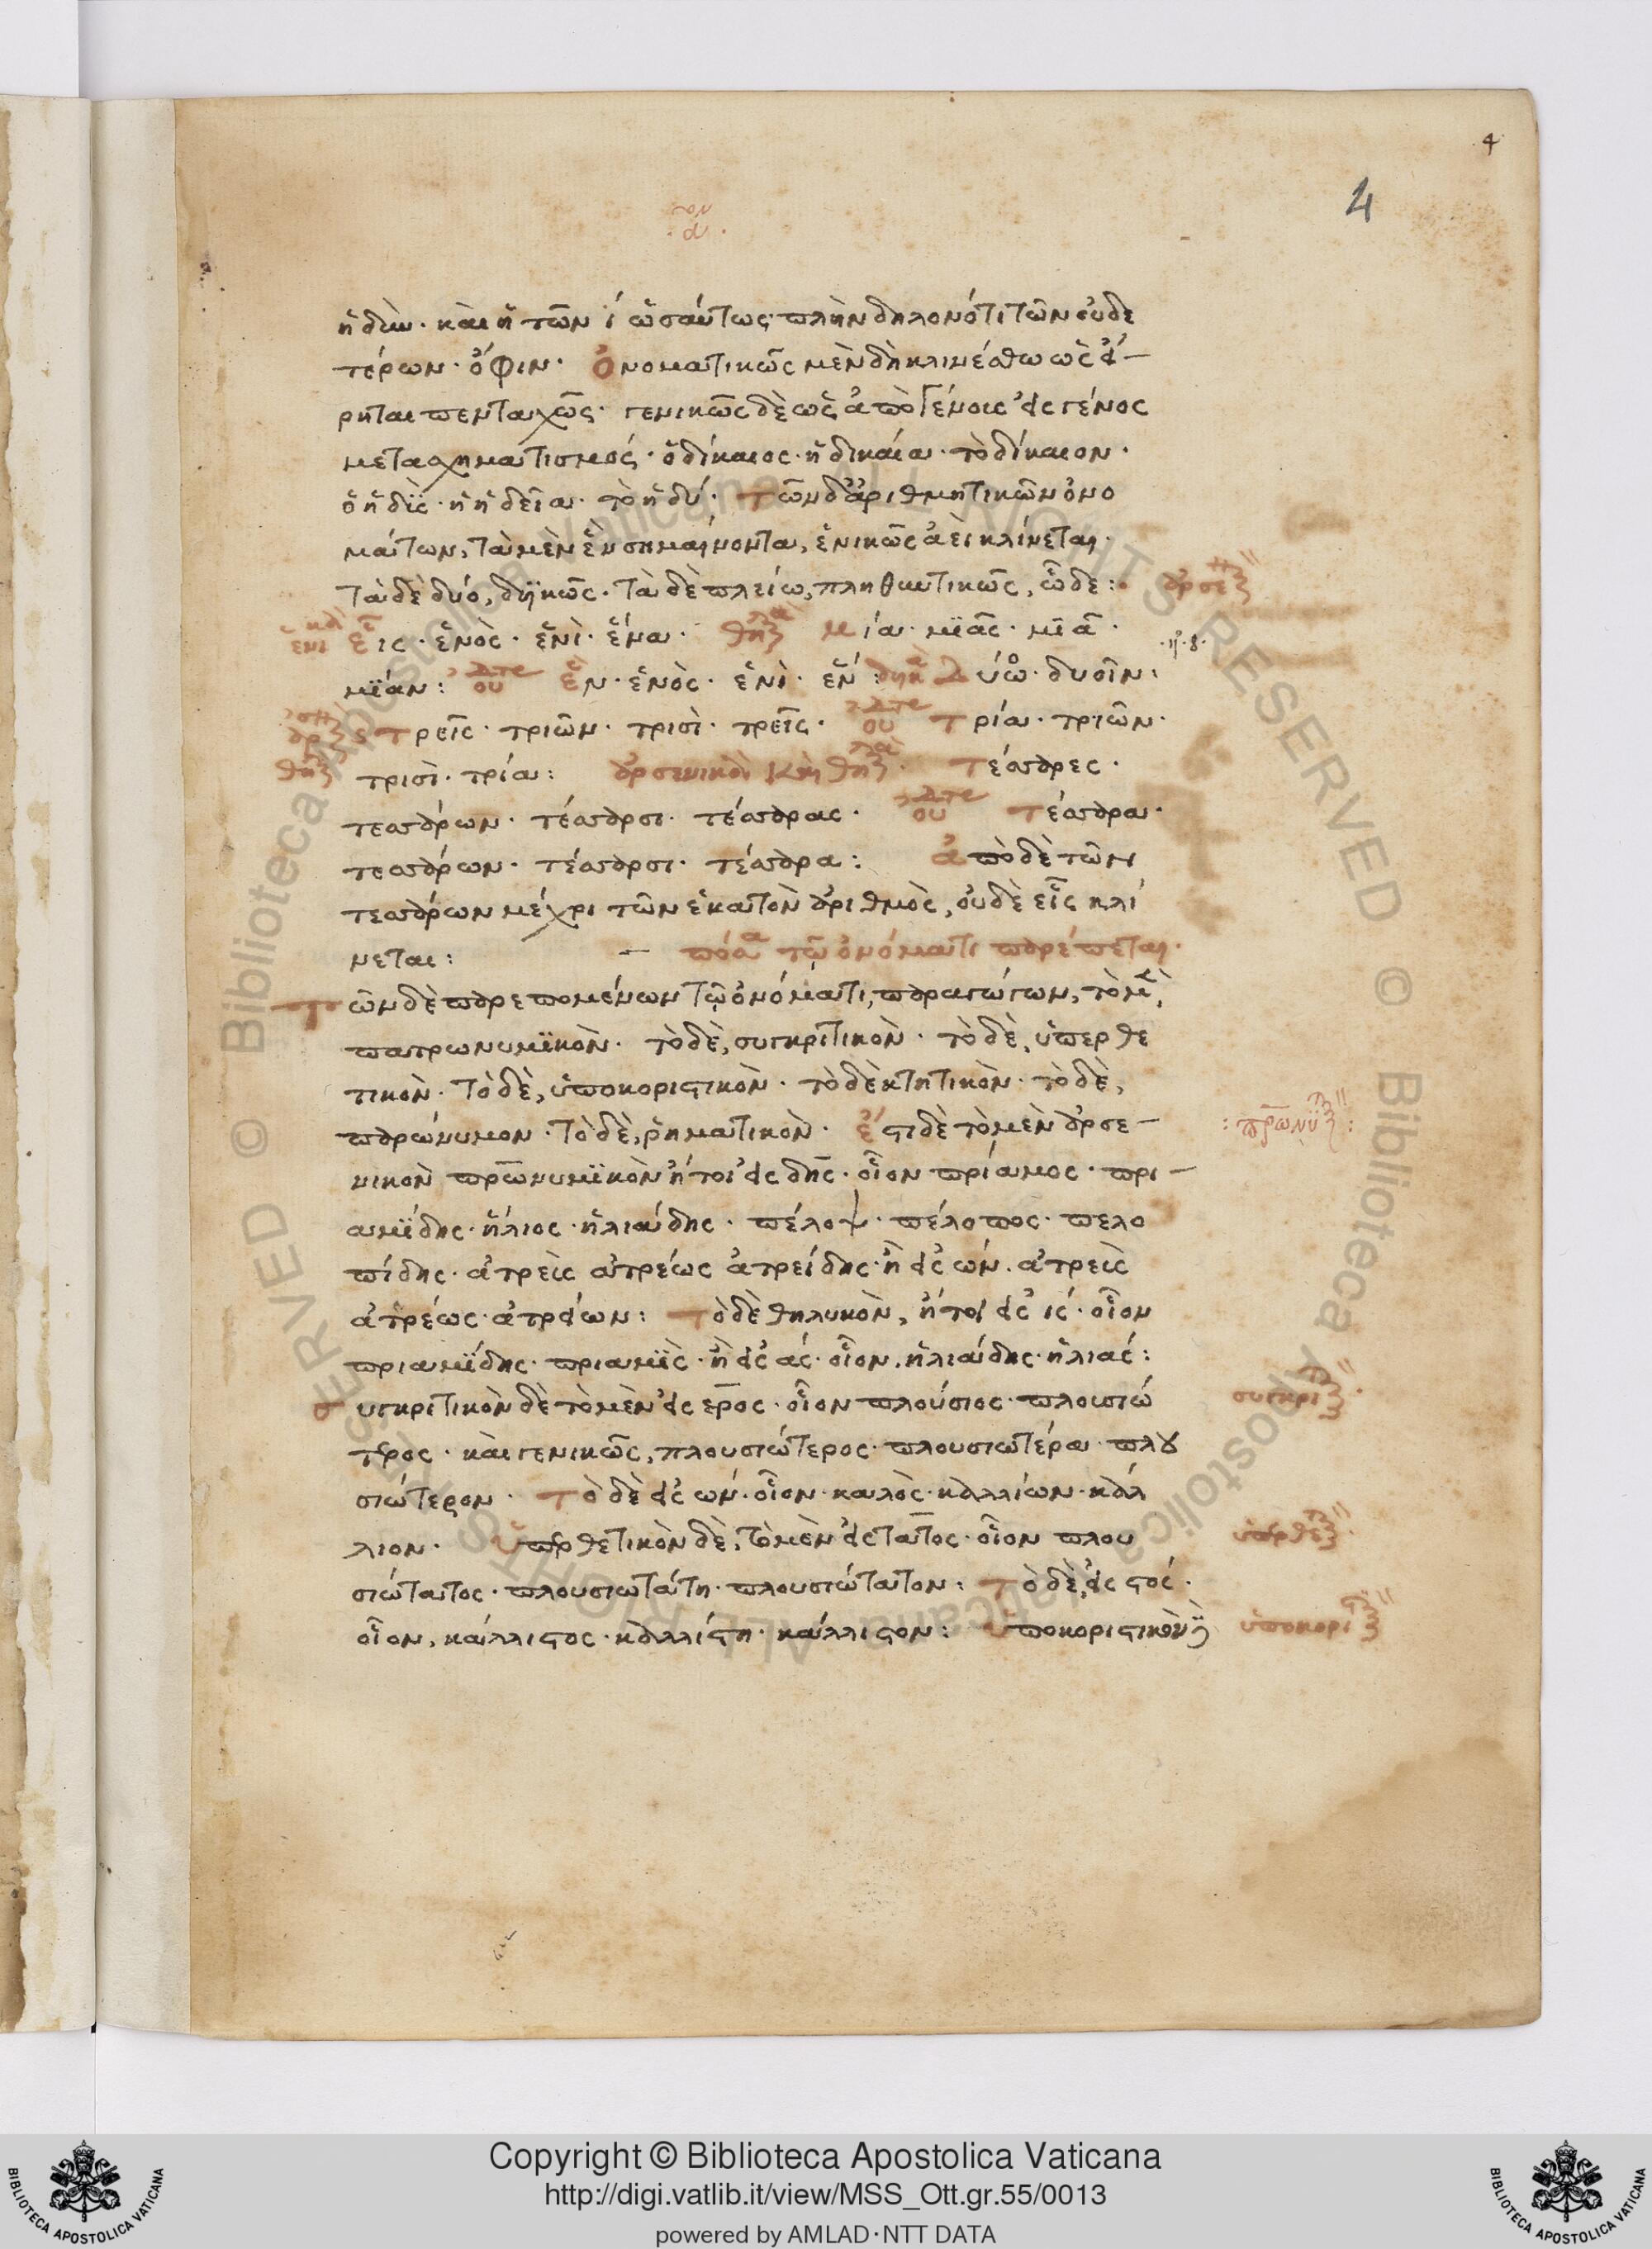 4
4
ἡδὺν· καὶ ἡ τῶν ί ὡσαύτως πλὴν δηλονότι τῶν οὐδε
τέρων· ὄφιν· Ὀνοματικῶς μὲν δὴ κλινέσθω ὡς εἴ-
ρηται πενταχῶς· γενικῶς δὲ ὡς ἀπὸ γένους εἰς γένος
μετασχηματισμός· ὁ δίκαιος· ἡ δικαία· τὸ δίκαιον·
ὁ ἡδὺς· ἡ ἡδεῖα· τὸ ἡδύ· Τῶν δ' ἀριθμητικῶν ὀνο
μάτων, τὰ μὲν ἓν σημαίνοντα, ἑνικῶς ἀεὶ κλίνεται·
τὰ δὲ δύο, δυϊκῶς· τὰ δὲ πλείω, πληθυντικῶς, ὧδε: ἀρσε
ἑνι Εἷς· ἑνὸς· ἑνὶ· ἕνα· θη Μία· μϊᾶς· μϊᾷ·
μϊάν: οὐ Ἓν· ἑνὸς· ἑνὶ· ἕν: δυϊ Δύω· δυοῖν:
ἀρ Τρεῖς· τριῶν· τρισὶ· τρεῖς· οὐ Τρία· τριῶν·
θη τρισὶ· τρία: ἀρσενικὸν καὶ θη Τέσσαρες·
τεσσάρων· τέσσαρσι· τέσσαρας· οὐ Τέσσαρα·
τεσσάρων· τέσσαρσι· τέσσαρα: Ἀπὸ δὲ τῶν
τεσσάρων μέχρι τῶν ἑκατὸν ἀριθμὸς, οὐδὲ εἷς κλί
νεται: πόσα τῷ ὀνόματι παρέπεται·
Τῶν δὲ παρεπομένων τῷ ὀνόματι, παραγώγων, τὸ μὲν,
πατρωνυμϊκὸν· τὸ δὲ, συγκριτικὸν· τὸ δὲ, ὑπερθε
τικὸν· τὸ δὲ, ὑποκοριστικὸν· τὸ δὲ κτητικὸν· τὸ δὲ,
παρώνυμον· τὸ δὲ, ῥηματικὸν· ἔστι δὲ τὸ μὲν ἀρσε-
νικὸν πατρωνυμϊκὸν ἤτοι εἰς δης· οἷον πρίαμος· πρι-
αμϊδης· ἥλιος· ἡλιάδης· πέλοψ· πέλοπος· πελο
πίδης· ἀτρεὺς ἀτρέως ἀτρείδης· ἢ εἰς ων· ἀτρεὺς
ἀτρέως· ἀτρείων: Τὸ δὲ θηλυκὸν, ἤτοι εἰς ις· οἷον
πριαμϊδης· πριαμϊς· ἢ εἰς ας· οἷον, ἡλιάδης· ἡλιάς:
Συγκριτικὸν δὲ τὸ μὲν εἰς ερος· οἷον πλούσιος· πλουσιώ συγκρι
τερος· καὶ γενικῶς, πλουσιώτερος· πλουσιωτέρα· πλου
σιώτερον· Τὸ δὲ εἰς ων· οἷον· καλὸς· καλλίων· κάλ
λιον· Ὑπερθετικὸν δὲ, τὸ μὲν εἰς τατος· οἷον πλου ὑπερθε
σιώτατος· πλουσιωτάτη· πλουσιώτατον: Τὸ δὲ, εἰς στος·
οἷον, κάλλιστος· καλλίστη· κάλλιστον: Ὑποκοριστικὸν ὑποκορι
Copyright © Biblioteca Apostolica Vaticana
http://digi.vatlib.it/view/MSS_Ott.gr.55/0013
powered by AMLAD·NTT DATA